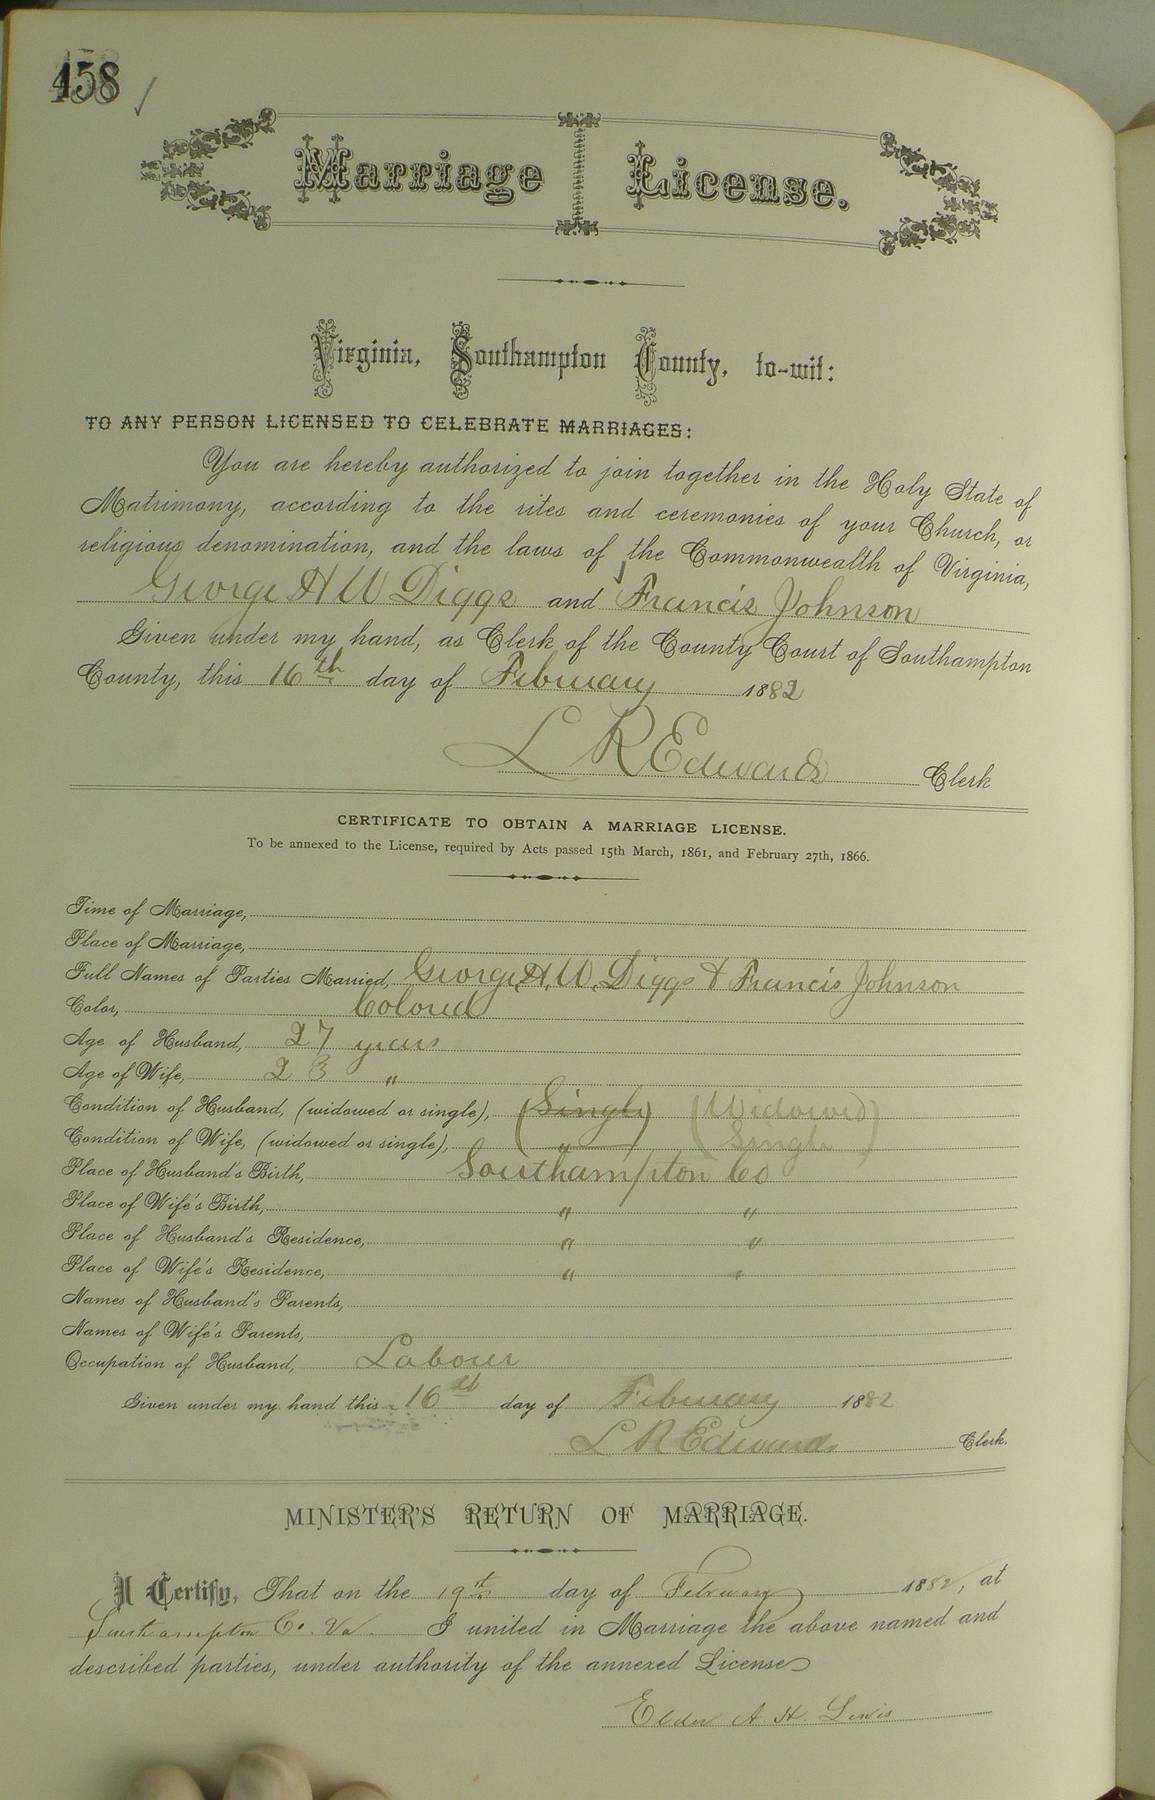 458
Marriage License.
Virginia, Southampton County, to-wit:
TO ANY PERSON LICENSED TO CELEBRATE MARRIAGES:
You are hereby authorized to join together in the Holy State of
Matrimony, according to the rites and ceremonies of your Church, or
religious denomination, and the laws of the Commonwealth of Virginia,
George H W Diggs and Francis Johnson
Given under my hand, as Clerk of the County Court of Southampton
County, this 16th day of February 1882
L R Edwards Clerk
CERTIFICATE TO OBTAIN A MARRIAGE LICENSE.
To be annexed to the License, required by Acts passed 15th March, 1861, and February 27th, 1866.
Time of Marriage,
Place of Marriage,
Full Names of Parties Married, George, H, W, Diggs & Francis Johnson
Color, Colored
Age of Husband, 27 years
Age of Wife, 23 "
Condition of Husband, (widowed or single), (Single) (Widowed)
Condition of Wife, (widowed or single), " Single
Place of Husband's Birth, Southampton Co
Place of Wife's Birth, " "
Place of Husband's Residence, " "
Place of Wife's Residence, " "
Names of Husband's Parents,
Names of Wife's Parents,
Occupation of Husband, Labour
Given under my hand this 16th day of February 1882
L R Edwards Clerk.
MINISTER'S RETURN OF MARRIAGE.
I Certify, That on the 19th day of February 1882, at
Southampton Co. Va. I united in Marriage the above named and
described parties, under authority of the annexed License
Elder A. H. Lewis